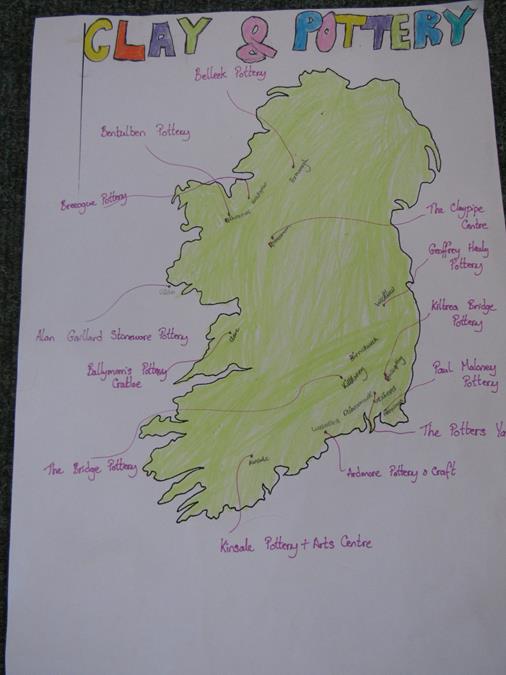 CLAY & POTTERY
Belleek Pottery
Benbulben Pottery
Breeogue Pottery
Fermanagh
The Claypipe
Centre
Geoffrey Healy
Pottery
Wicklow
Kiltrea Bridge
Pottery
Alan Gaillard Stoneware Pottery
Clare
Ballymorris Pottery
Cratloe
Kilkenny
Paul Maloney
Pottery
Wexford
The Potters Ya
The Bridge Pottery
Kinsale
Ardmore Pottery & Craft
Kinsale Pottery + Arts Centre